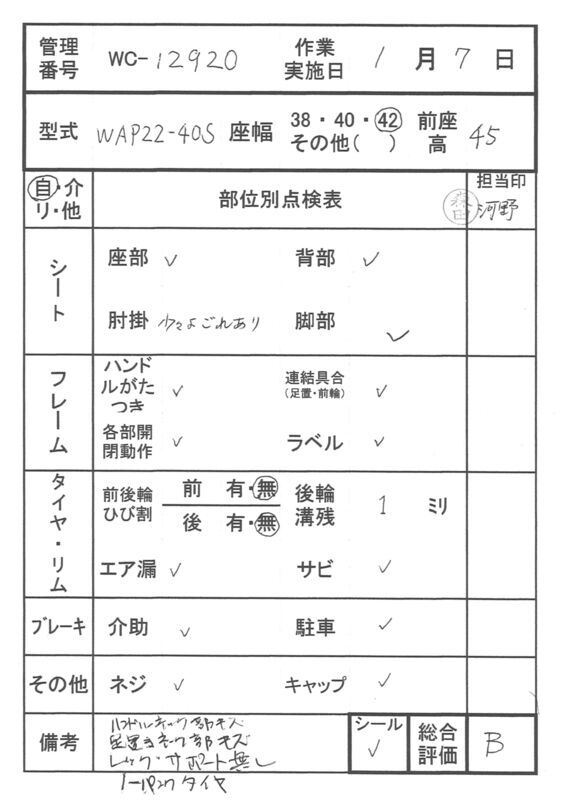 管理番号 WC-12920 作業実施日 1月7日
型式 WAP22-40S 座幅 38・40・42 その他( ) 前座高 45
自・介リ・他 部位別点検表 担当印
森田 河野
シート 座部 ✓ 背部 ✓
肘掛 少々よごれあり 脚部 ✓
フレーム ハンドルがたつき ✓ 連結具合(足置・前輪) ✓
各部開閉動作 ✓ ラベル ✓
タイヤ・リム 前後輪ひび割 前 有・無 後 有・無 後輪溝残 1 ミリ
エア漏 ✓ サビ ✓
ブレーキ 介助 ✓ 駐車 ✓
その他 ネジ ✓ キャップ ✓
備考 シール ✓ 総合評価 B
ハンドルネック部キズ
足置きネック部キズ
レッグ・サポート無し
ノーパンクタイヤ